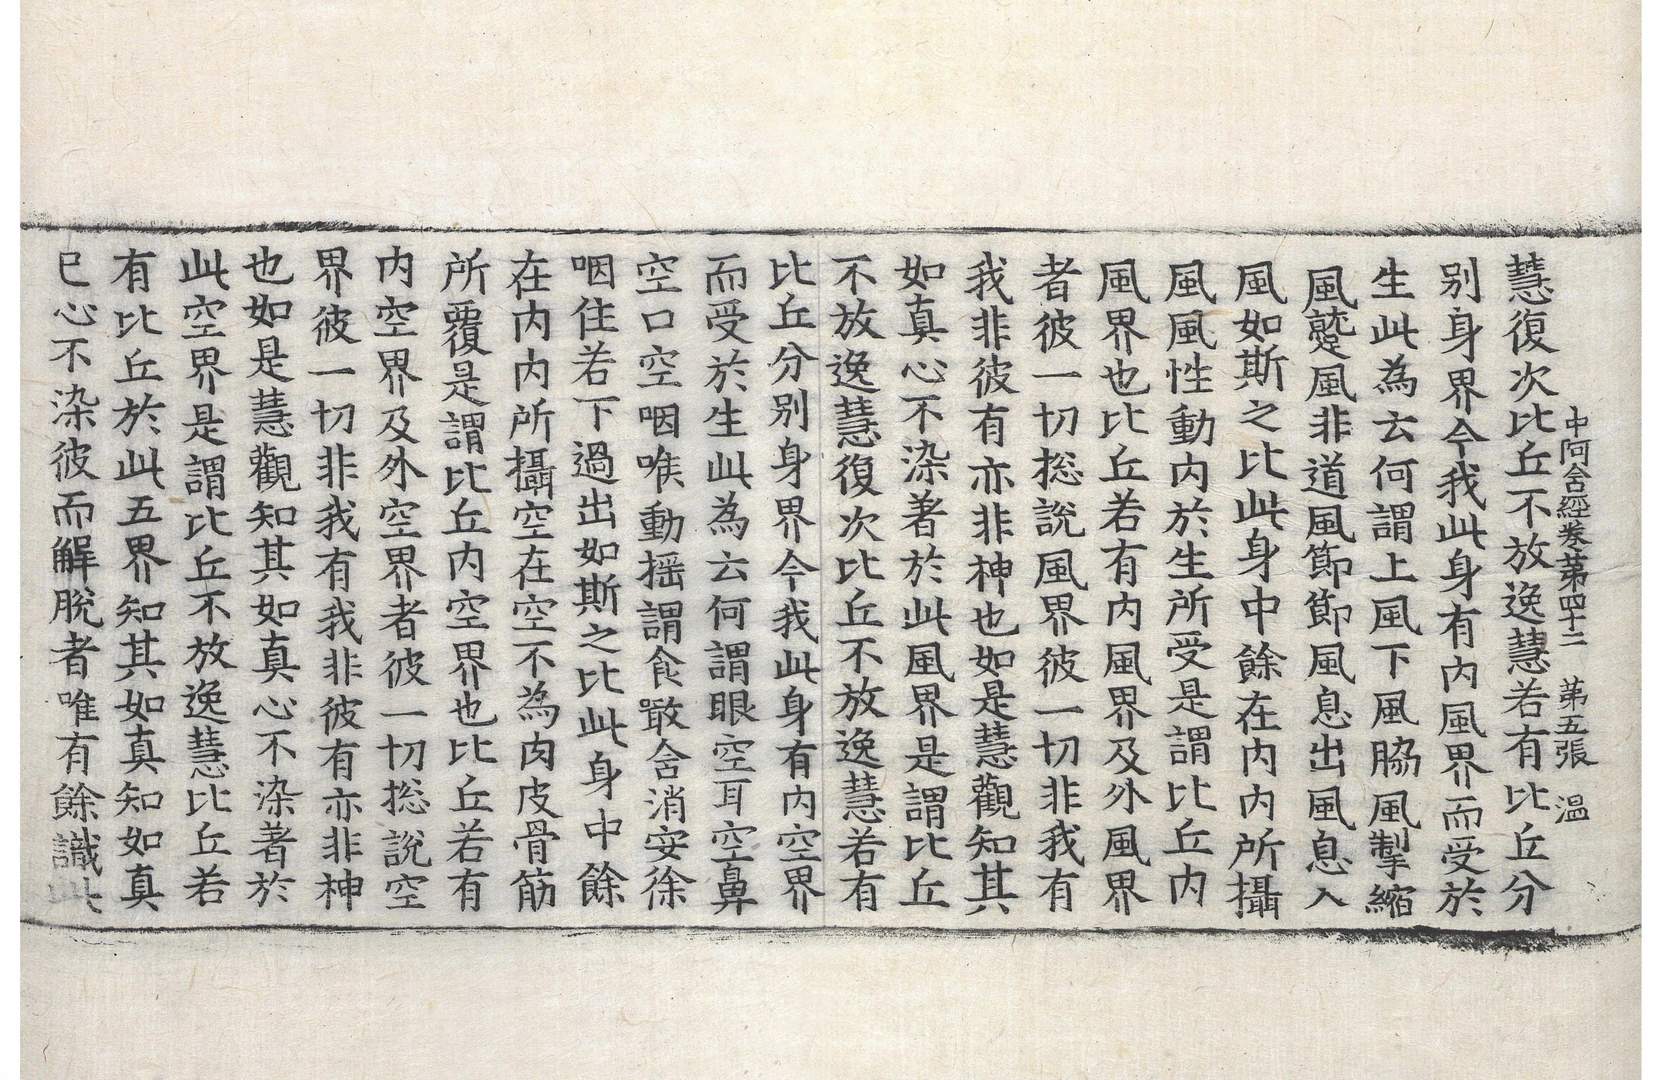 中阿含經卷第四十二　第五張　温
慧復次比丘不放逸慧若有比丘分
别身界今我此身有内風界而受於
生此為云何謂上風下風脇風掣縮
風蹵風非道風節節風息出風息入
風如斯之比此身中餘在内内所攝
風風性動内於生所受是謂比丘内
風界也比丘若有内風界及外風界
者彼一切揔說風界彼一切非我有
我非彼有亦非神也如是慧觀知其
如真心不染著於此風界是謂比丘
不放逸慧復次比丘不放逸慧若有
比丘分别身界今我此身有内空界
而受於生此為云何謂眼空耳空鼻
空口空咽咽喉動揺謂食噉含消安徐
咽住若下過出如斯之比此身中餘
在内内所攝空在空不為肉皮骨筋
所覆是謂比丘内空界也比丘若有
内空界及外空界者彼一切揔說空
界彼一切非我有我非彼有亦非神
也如是慧觀知其如真心不染著於
此空界是謂比丘不放逸慧比丘若
有比丘於此五界知其如真知如真
已心不染彼而解脫者唯有餘識此